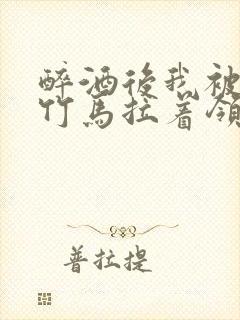 醉酒後我被
竹馬拉着領
普拉提